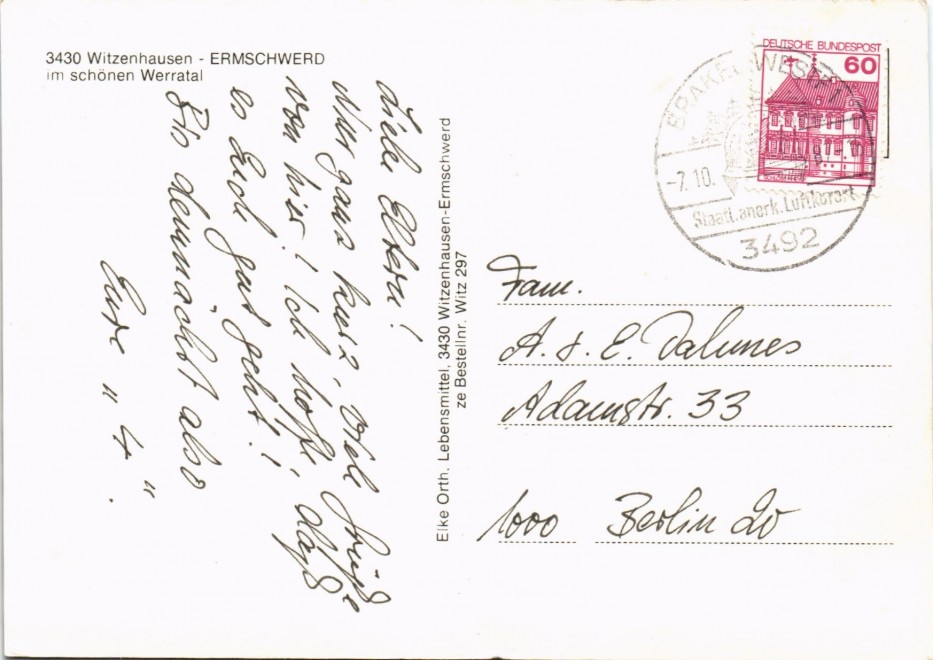 3430 Witzenhausen - ERMSCHWERD
im schönen Werratal
Liebe Eltern!
Nur ganz kurz, viele Grüße
von hier! Ich hoffe, daß
es Euch gut geht!
Bis demnächst also
Eure "4".
Elke Orth. Lebensmittel, 3430 Witzenhausen-Ermschwerd
ze Bestellnr. Witz 297
DEUTSCHE BUNDESPOST
60
BRAKEL, WESTF 1
-7.10.
Staatl. anerk. Luftkurort
3492
Fam.
A. u. E. Dalunes
Adamstr. 33
1000 Berlin 20